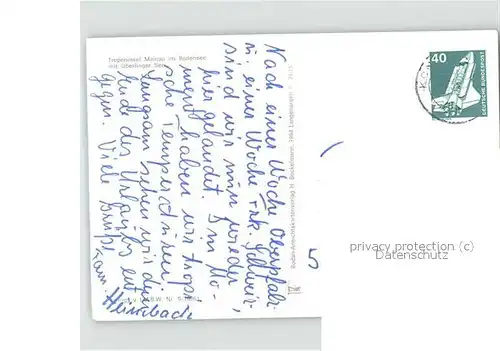 Tropeninsel Mainau im Bodensee
mit Überlinger See
Nach einer Woche Oberpfalz
u. einer Woche frk. Schweiz,
sind wir nun wieder
hier gelandet. Im Mo-
ment haben wir tropi-
sche Temperaturen.
Langsam sehen wir dem
Ende des Urlaubs ent-
gegen. Viele Grüße
Fam. Heimbach
5
40
DEUTSCHE BUNDESPOST
privacy protection (c)
Datenschutz